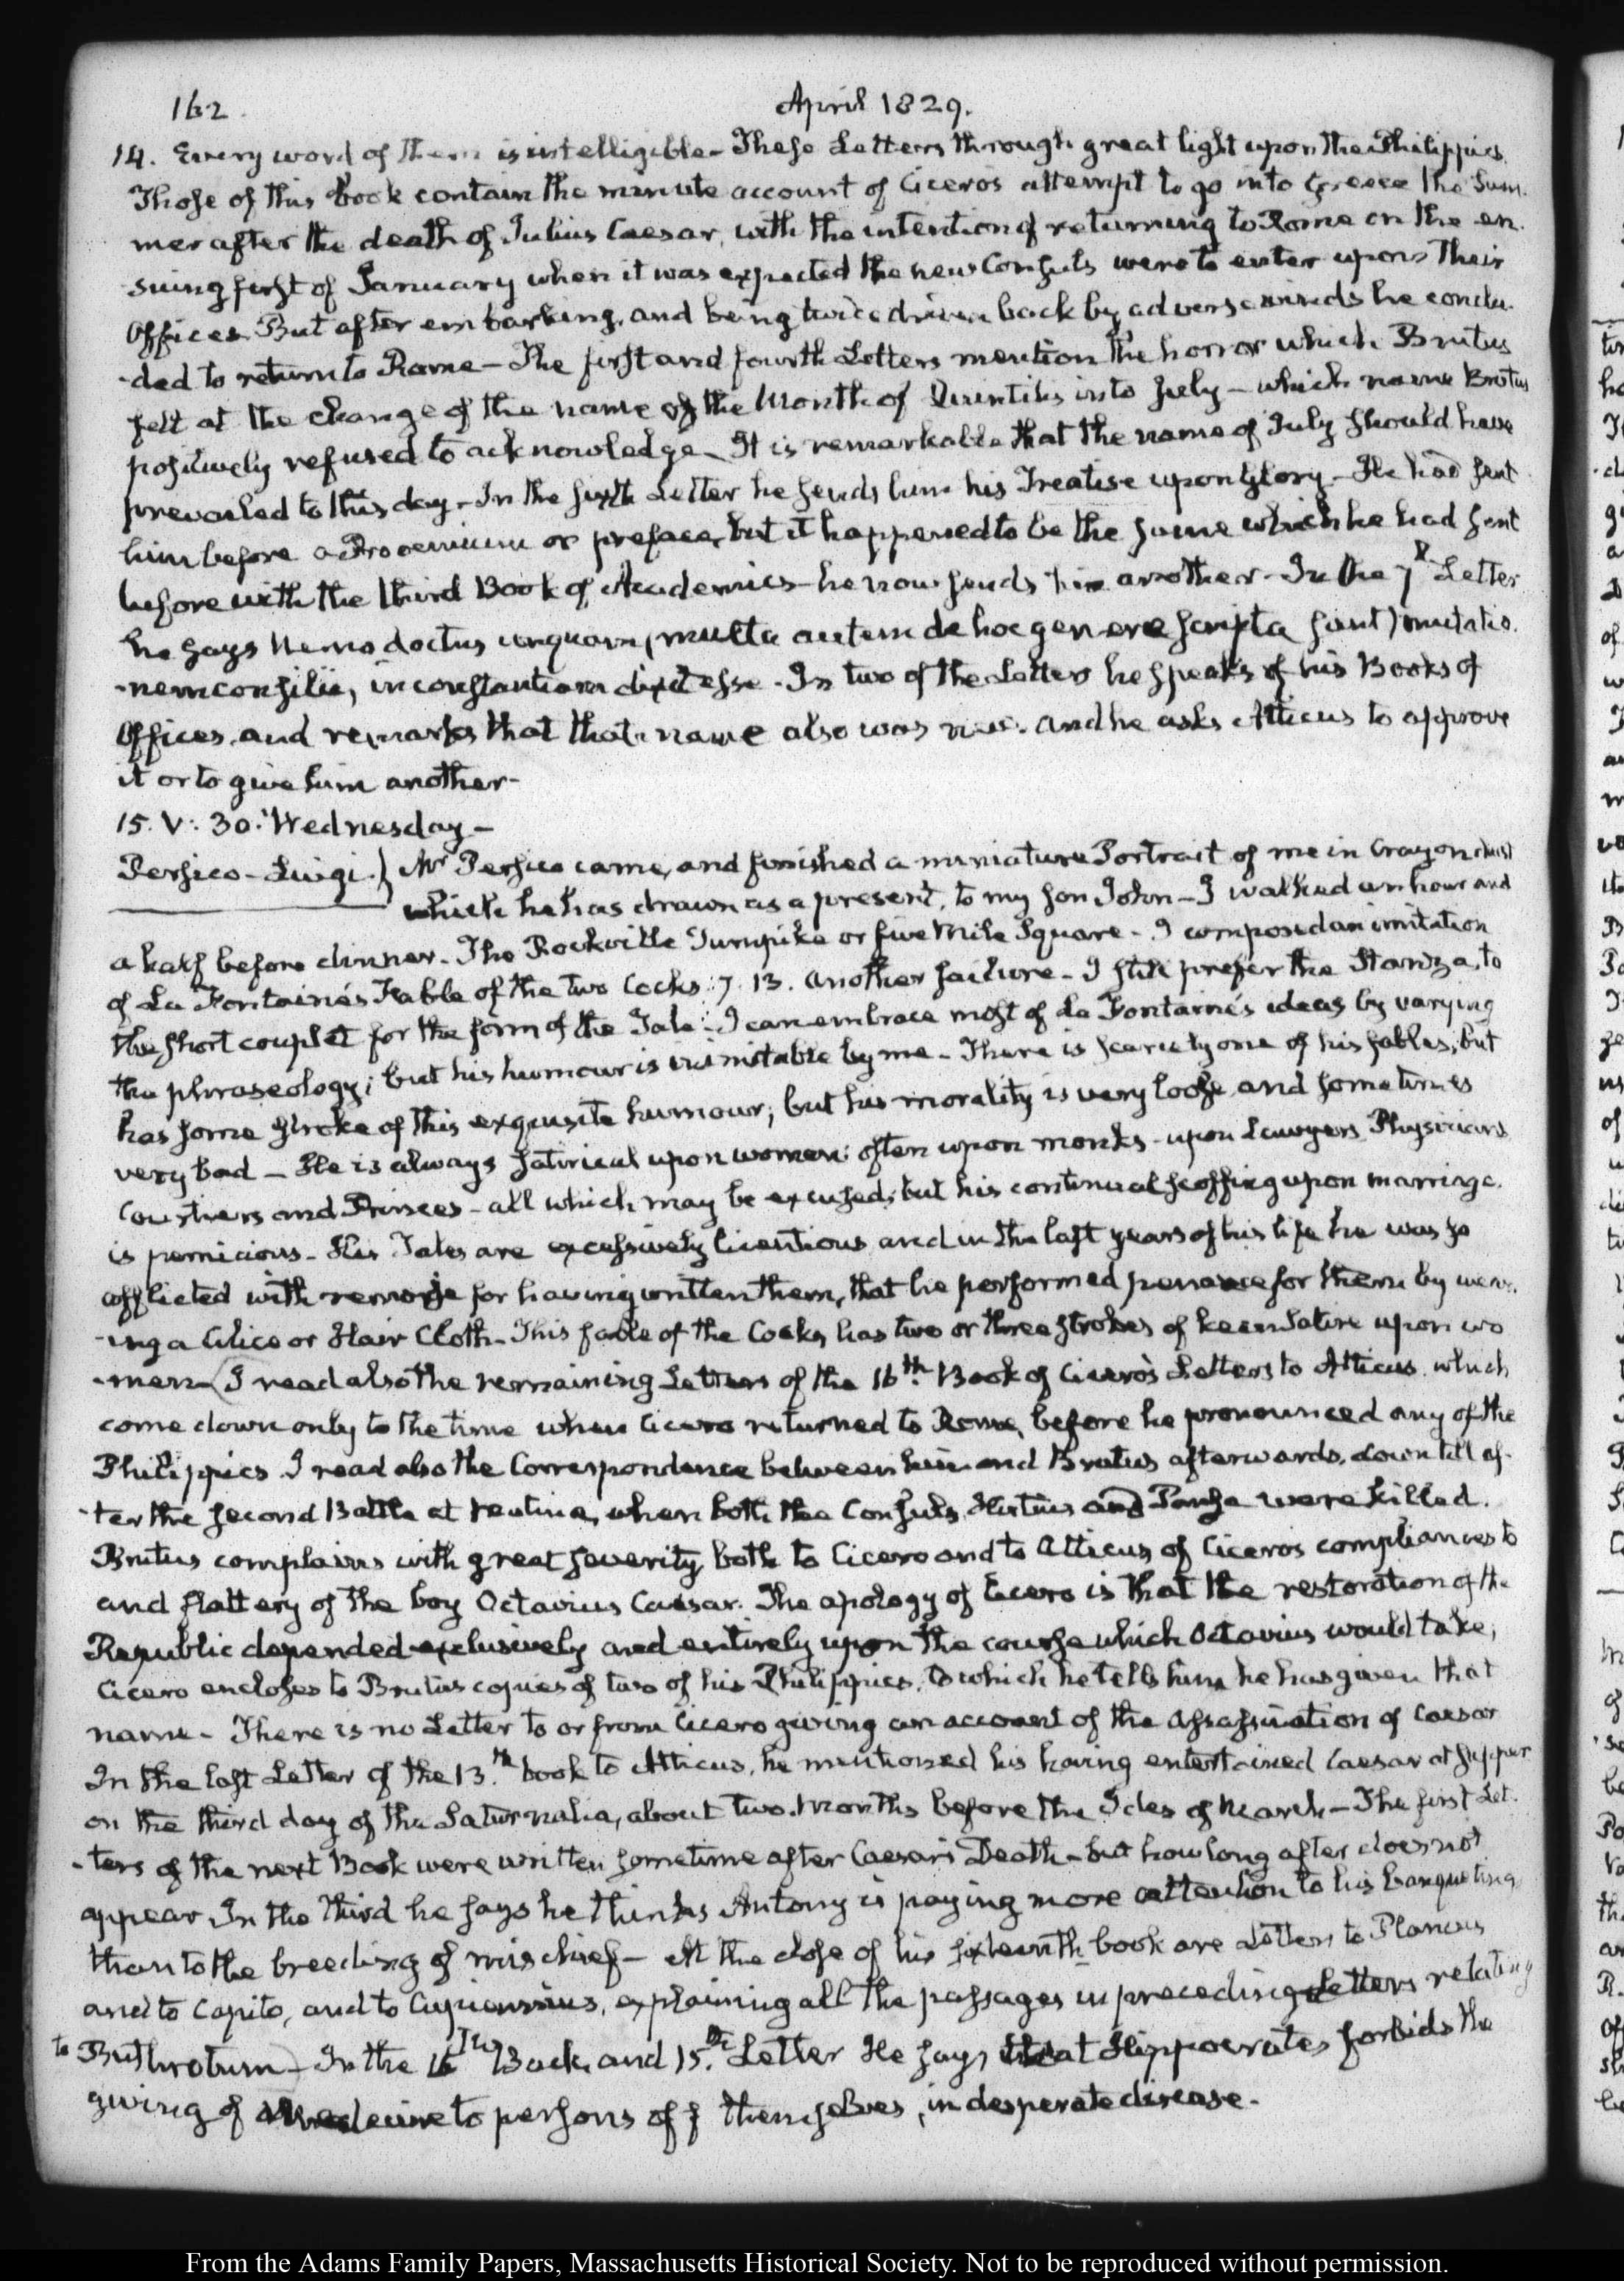 162
April 1829.
14. Every word of them is intelligible - These Letters through great light upon the Philippics
Those of this book contain the minute account of Ciceros attempt to go into Greece the Sum-
mer after the death of Julius Caesar, with the intention of returning to Rome on the en-
suing first of January when it was expected the new Consuls were to enter upon Their
Offices. But after embarking, and being twice driven back by adverse winds he conclu-
-ded to return to Rome - The first and fourth Letters mention the horror which Brutus
felt at the change of the name of the Month of Quintilis into July - which name Brutus
positively refused to acknowledge - It is remarkable that the name of July should have
prevailed to this day - In the sixth Letter he sends him his Treatise upon Glory - He had sent
him before a Prooemium or preface, but it happened to be the same which he had sent
before with the third Book of Academics - he now sends him another - In the 7th Letter
he says Nemo doctus unquam (multa autem de hoc genere scripta sunt) mutatio-
-nem consilii, inconstantiam dixit esse - In two of the Letters he speaks of his Books of
Offices, and remarks that that name also was new. and he asks Atticus to approve
it or to give him another -
15. V: 30. Wednesday -
Persico - Luigi. } Mr Persico came, and finished a miniature Portrait of me in Crayon
which he has drawn as a present, to my Son John - I walked an hour and
a half before dinner - The Rockville Turnpike or five Mile Square - I composed an imitation
of La Fontaine's Fable of the two Cocks. 7. 13. another failure - I still prefer the Stanza, to
the short couplet for the form of the Tale. I can embrace most of La Fontaine's ideas by varying
the phraseology; but his humour is inimitable by me - There is scarcely one of his fables, but
has some stroke of this exquisite humour; but his morality is very loose, and sometimes
very bad - He is always satirical upon women; often upon monks - upon Lawyers, Physicians
Courtiers and Princes - all which may be excused; but his continual scoffing upon marriage
is pernicious - His Tales are excessively licentious and in the last years of his life he was so
afflicted with remorse for having written them, that he performed penance for them by wear-
-ing a Cilice or Hair Cloth - This fable of the Cocks has two or three strokes of keen Satire upon wo
-men - (I read also the remaining Letters of the 16th. Book of Cicero's Letters to Atticus. which
come down only to the time when Cicero returned to Rome, before he pronounced any of the
Philippics. I read also the Correspondence between him and Brutus afterwards, down till af-
-ter the second Battle at Mutina, when both the Consuls, Hirtius and Pansa were killed.
Brutus complains with great severity both to Cicero and to Atticus of Ciceros compliances to
and flattery of the boy Octavius Caesar. The apology of Cicero is that the restoration of the
Republic depended exclusively and entirely upon the course which Octavius would take,
Cicero encloses to Brutus copies of two of his Philippics, to which he tells him he has given that
name - There is no Letter to or from Cicero giving an account of the Assassination of Caesar
In the last Letter of the 13.th book to Atticus, he mentioned his having entertained Caesar at supper
on the third day of the Saturnalia, about two months before the Ides of March - The first Let-
-ters of the next Book were written sometime after Caesar's Death - but how long after does not
appear. In the third he says he thinks Antony is paying more attention to his banqueting
than to the breeding of mischief - At the close of his sixteenth book are Letters to Plancus
and to Capito, and to Cupiennius, explaining all the passages in preceding Letters relating
to Buthrotum) - In the 16th Book, and 15.th Letter He says that Hippocrates forbids the
giving of medicine to persons of themselves, in desperate disease -
From the Adams Family Papers, Massachusetts Historical Society. Not to be reproduced without permission.